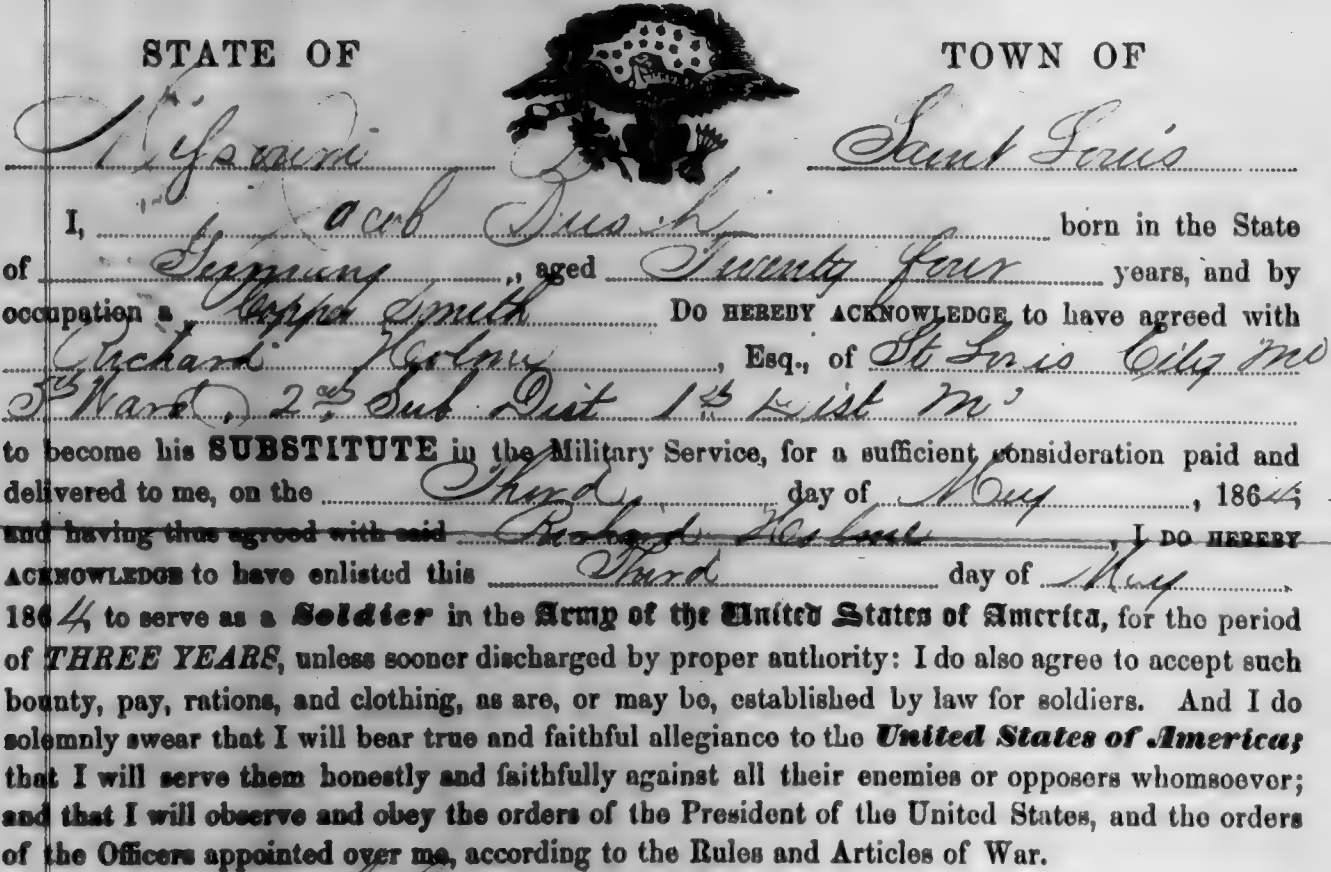 STATE OF TOWN OF
Missouri Saint Louis
I, Jacob Busch born in the State
of Germany, aged Twenty four years, and by
occupation a Copper Smith DO HEREBY ACKNOWLEDGE to have agreed with
Richard Holmes, Esq., of St Louis City Mo
5th Ward, 2nd Sub Dist 1st Dist Mo
to become his SUBSTITUTE in the Military Service, for a sufficient consideration paid and
delivered to me, on the Third day of May, 1864;
and having thus agreed with said Richard Holmes, I DO HEREBY
ACKNOWLEDGE to have enlisted this Third day of May,
1864, to serve as a Soldier in the Army of the United States of America, for the period
of THREE YEARS, unless sooner discharged by proper authority: I do also agree to accept such
bounty, pay, rations, and clothing, as are, or may be, established by law for soldiers. And I do
solemnly swear that I will bear true and faithful allegiance to the United States of America;
that I will serve them honestly and faithfully against all their enemies or opposers whomsoever;
and that I will observe and obey the orders of the President of the United States, and the orders
of the Officers appointed over me, according to the Rules and Articles of War.